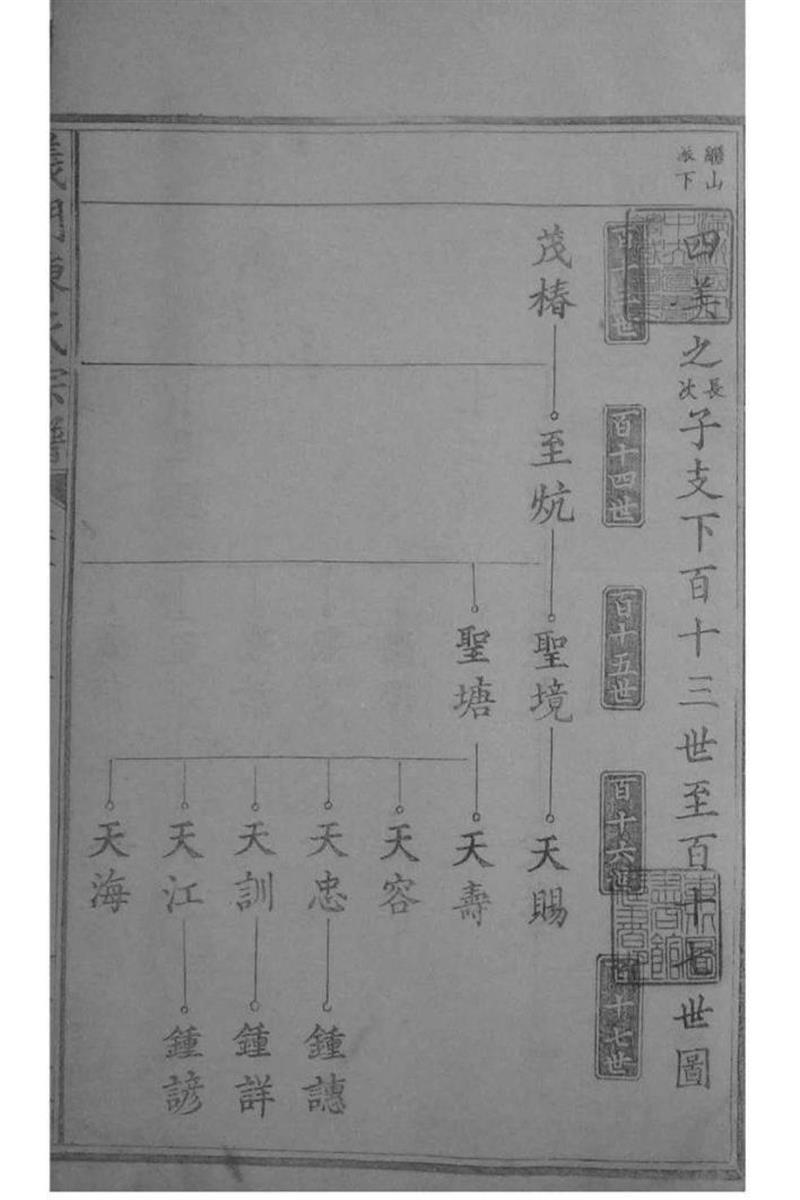 繼山派下
四美之長次子支下百十三世至百十七世圖
百十三世
百十四世
百十五世
百十六世
百十七世
茂椿
至炕
聖境
天賜
聖塘
天壽
天容
天忠
鍾譓
天訓
鍾詳
天江
鍾諺
天海
義門陳氏宗譜